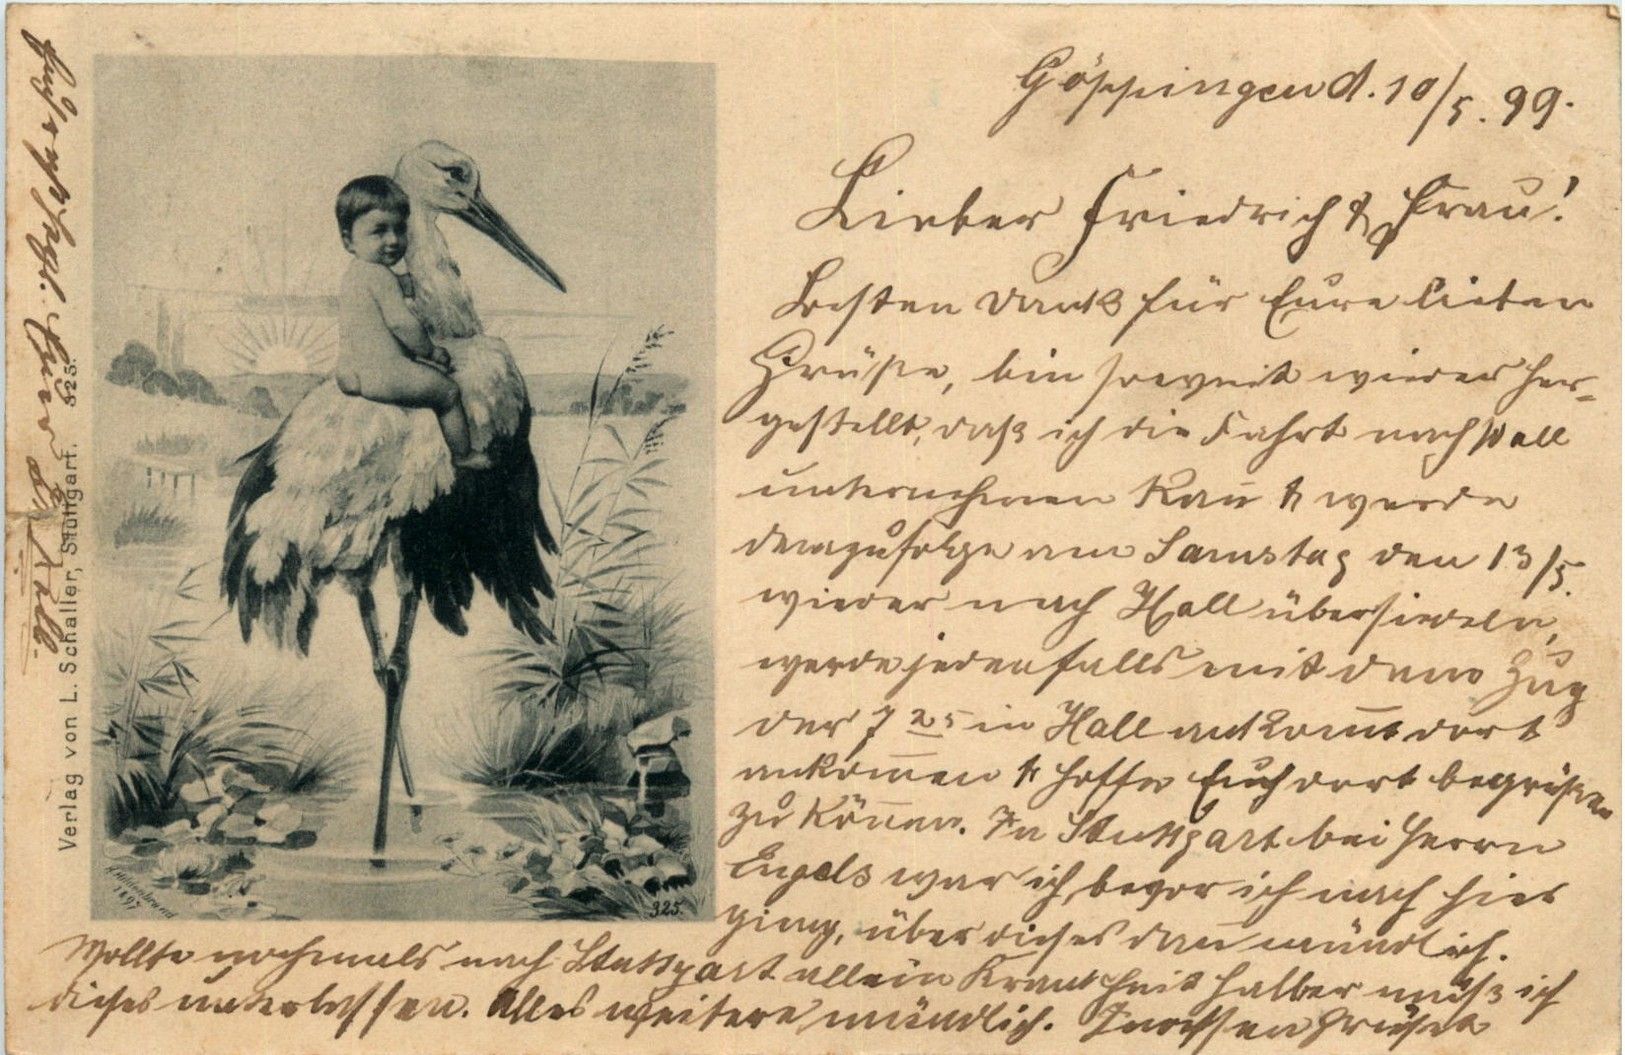 Göppingen d. 10/5. 99.
Lieber Friedrich & Frau!
Besten Dank für Eure lieben
Grüße, bin soweit wieder her-
gestellt, daß ich die Fahrt nach Hall
unternehmen kañ & werde
demzufolge am Samstag den 13/5.
wieder nach Hall übersiedeln,
werde jedenfalls mit dem Zug
der 7 25 in Hall ankom̄t dort
ankom̄en & hoffe Euch dort begrüßen
zu kön̄en. In Stuttgart bei Herrn
Engels war ich, bevor ich nach hier
ging, über dieses dan̄ mündlich.
Wollte nochmals nach Stuttgart allein Krankheit halber muß ich
dieses unterlassen. Alles weitere mündlich. grüßt
Euer
Verlag von L. Schaller, Stuttgart. 325.
1897
325.